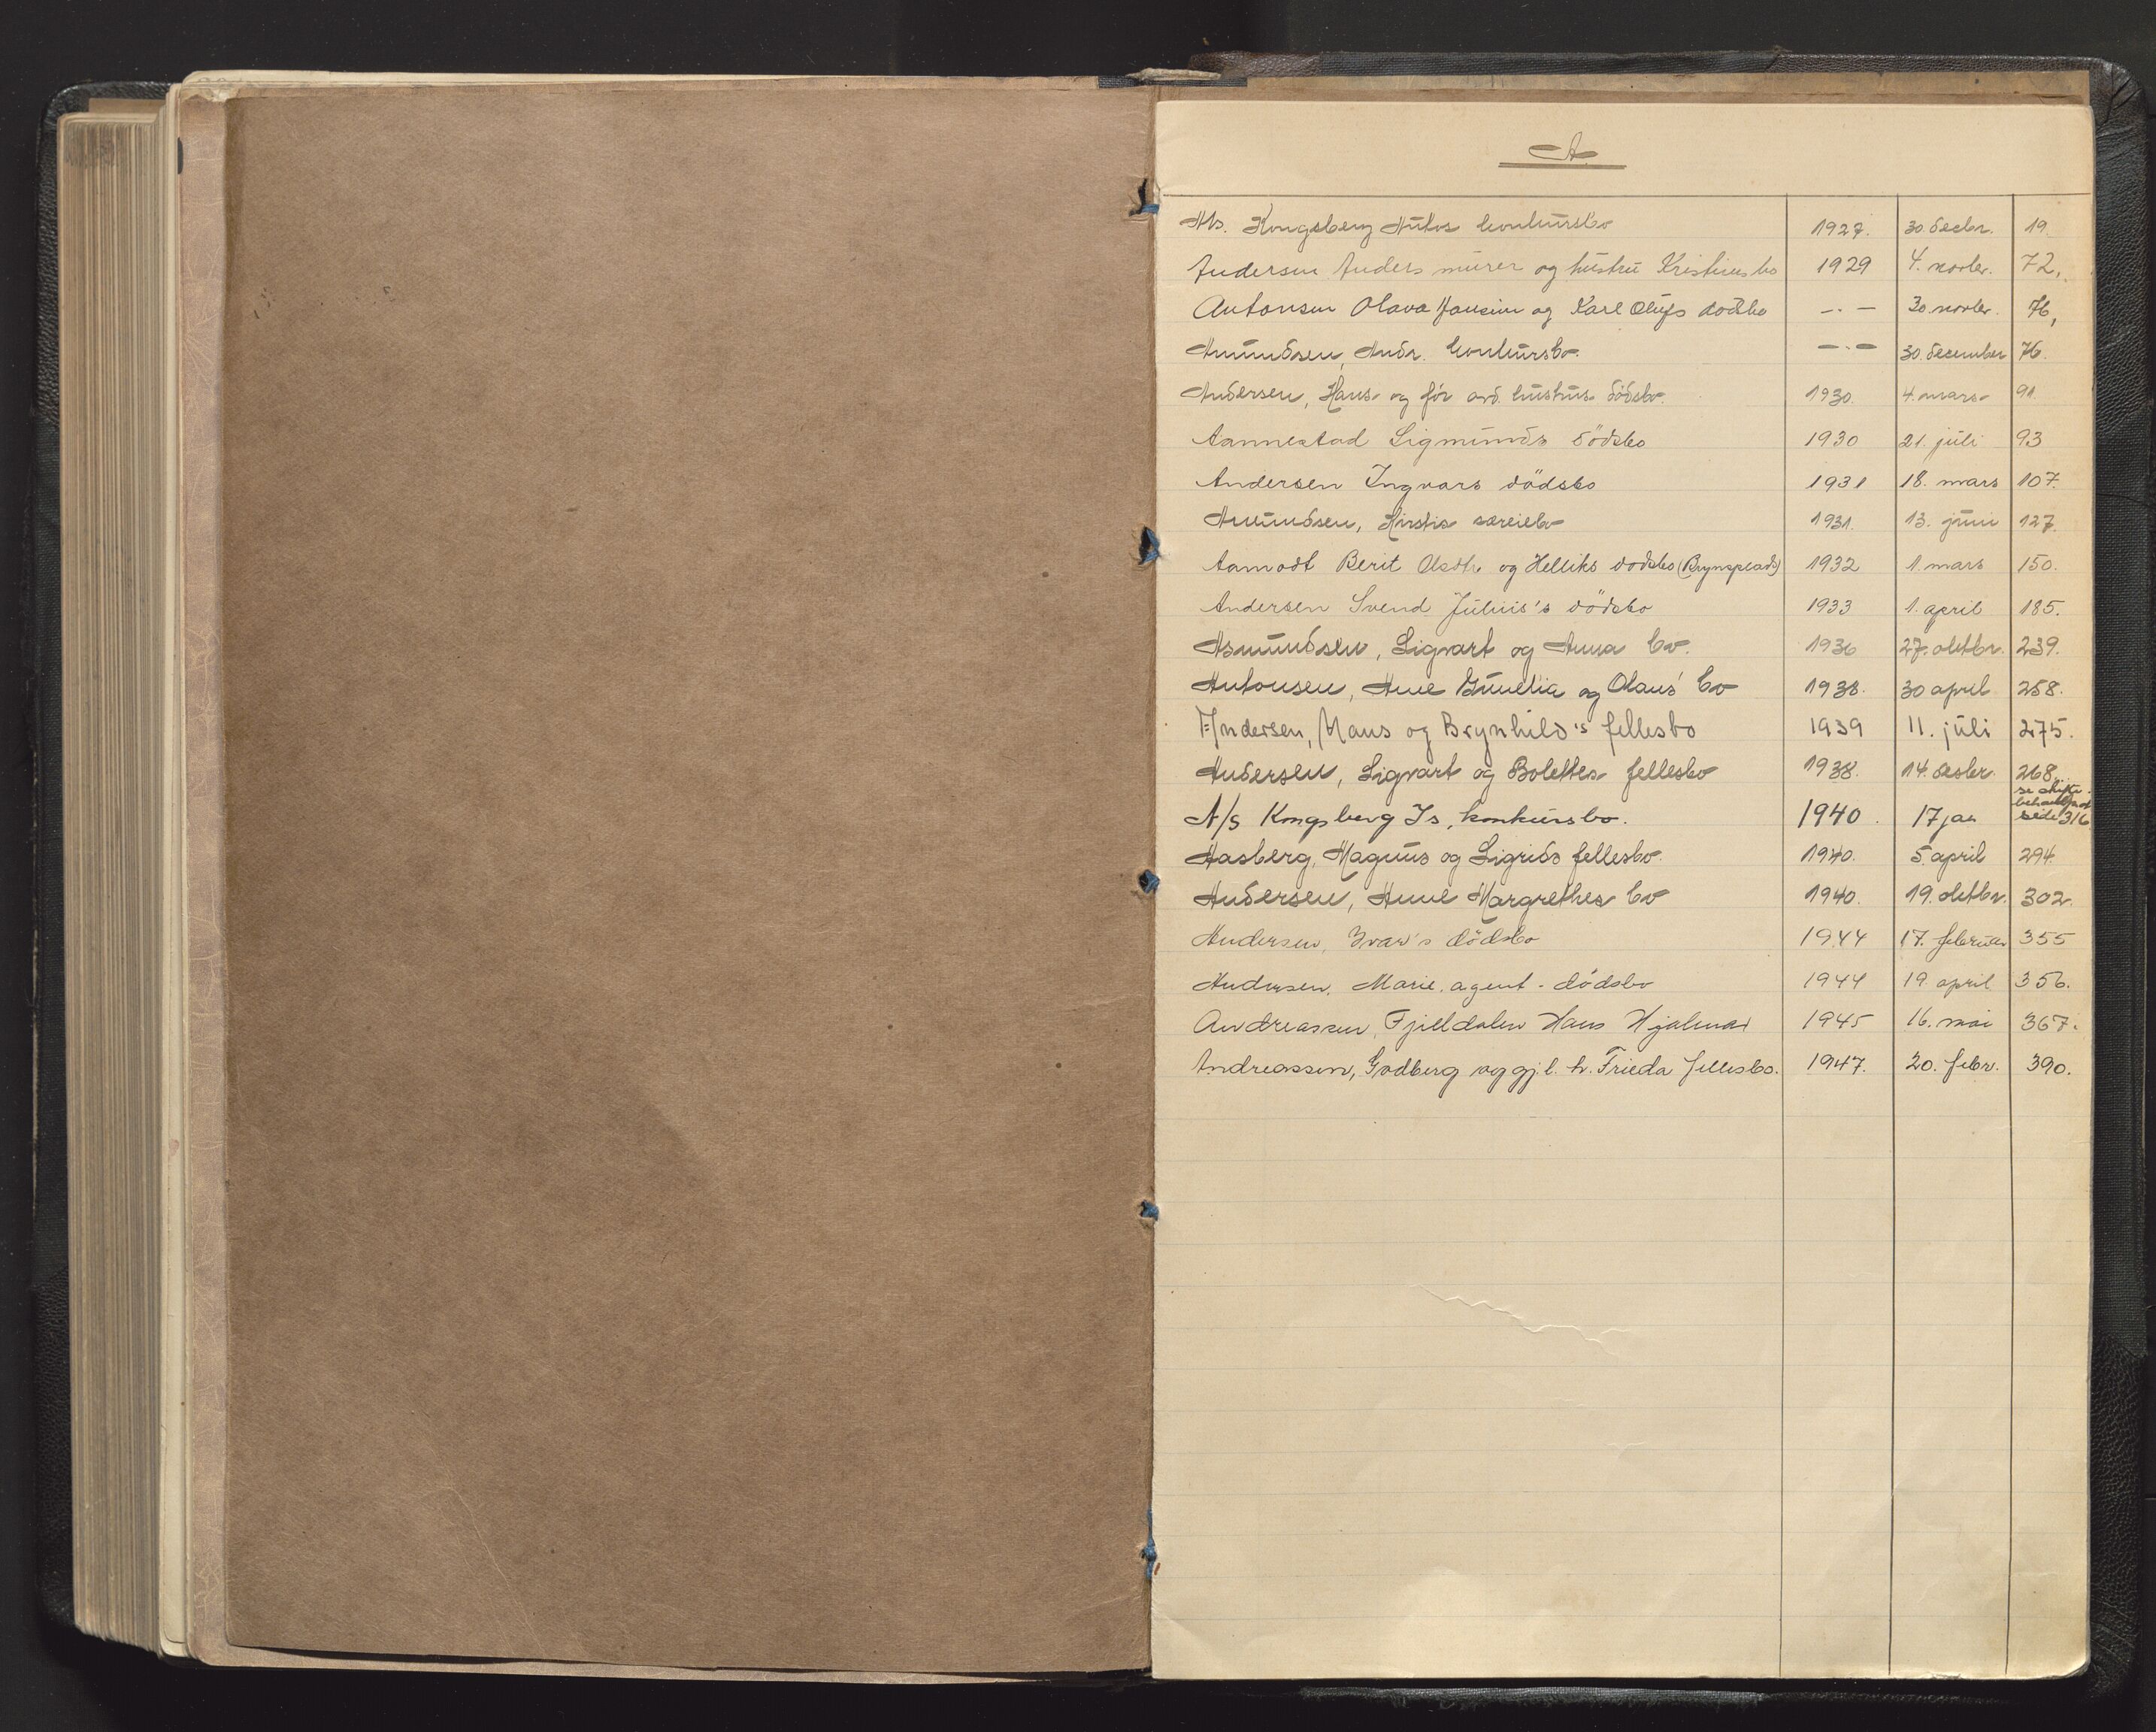 A.
A/s. Kongsberg Autos konkursbo 1927. 30 decbr. 19.
Andersen Anders murer og hustru Kristines bo 1929 4. novbr. 72,
Antonsen Olava Jansine og Karl Olufs dødsbo -.- 30 novbr. 76,
Amundsen, Andr. konkursbo. -.- 30. december 76.
Andersen, Hans og før avd. hustrus dødsbo. 1930. 4. mars 91
Aannestad Sigmunds dödsbo 1930 21. juli 93
Andersen Ingvars dödsbo 1931 18. mars 107.
Amundsen, Kirstis særeiebo 1931. 13. juni 127.
Aamodt Berit Olsdtr og Helliks dødsbo (Brynsplads) 1932 1. mars 150.
Andersen Svend Julius's dödsbo 1933 1. april 185.
Asmundsen, Sigvart og Anna bo. 1936 27. oktbr. 239.
Antonsen, Anne Gunelia og Olaus' bo 1938. 30 april 258.
Andersen, Hans og Brynhild's fellesbo 1939 11. juli 275.
Andersen, Sigvart og Bolettes fellesbo 1938. 14. desbr. 268.
se skifte-
behandl.prot
A/s Kongsberg Is, konkursbo. 1940. 17 jan side 316
Aasberg, Magnus og Sigrids fellesbo. 1940. 5. april 294.
Andersen, Anne Margrethes bo 1940. 19. oktbr. 302.
Andersen, Ivar's dödsbo 1944 17. februar 355
Andersen, Marie, agent - dödsbo 1944 19. april 356.
Andreassen, Fjelldalen Hans Hjalmar 1945 16. mai 367.
Andreassen, Godberg og gjl. h. Frieda fellesbo. 1947. 20. febr. 390.